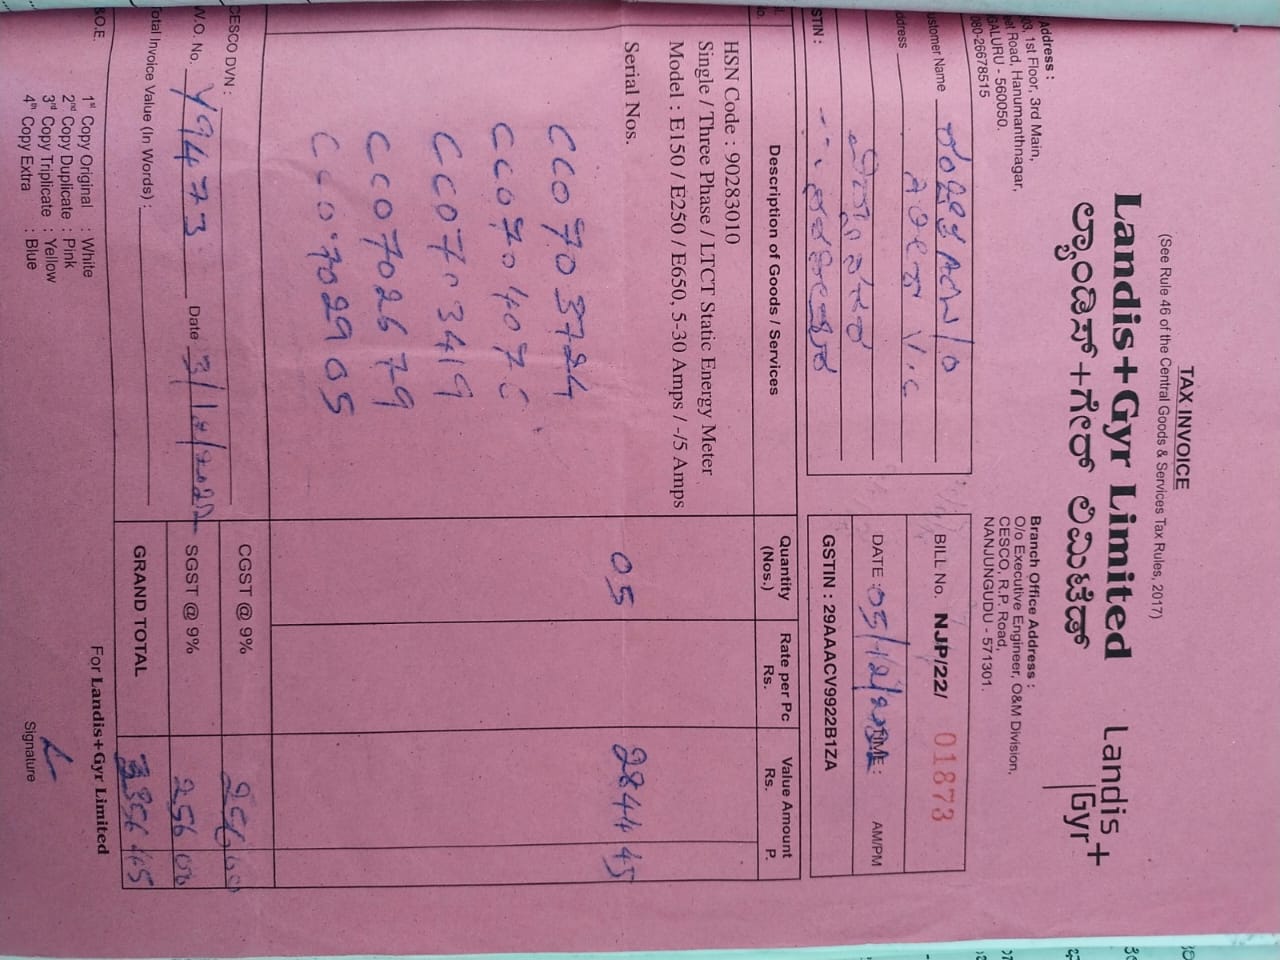 TAX INVOICE
(See Rule 46 of the Central Goods & Services Tax Rules, 2017)
Landis+Gyr Limited
ಲ್ಯಾಂಡಿಸ್+ಗೇರ್ ಲಿಮಿಟೆಡ್
Landis+
Gyr
Address :
03, 1st Floor, 3rd Main,
et Road, Hanumanthnagar,
GALURU - 560050.
080-26678515
Branch Office Address :
O/o Executive Engineer, O&M Division,
CESCO, R.P. Road,
NANJUNGUDU - 571301.
ustomer Name
ddress
STIN :
BILL No. NJP/22/ 01873
DATE : 05/12/2022 TIME : AM/PM
GSTIN : 29AAACV9922B1ZA
l. No.
Description of Goods / Services
Quantity (Nos.)
Rate per Pc Rs.
Value Amount Rs. P.
HSN Code : 90283010
Single / Three Phase / LTCT Static Energy Meter
Model : E150 / E250 / E650, 5-30 Amps / -/5 Amps
Serial Nos. 05 2844 45
CC0703724
CC070407
CC0703419
CC0702679
CC0702905
CESCO DVN :
CGST @ 9% 256 00
W.O. No. Y9473 Date 3/12/2022
SGST @ 9% 256 00
otal Invoice Value (In Words) :
GRAND TOTAL 3356 45
&O.E.
For Landis+Gyr Limited
1st Copy Original : White
2nd Copy Duplicate : Pink
3rd Copy Triplicate : Yellow
4th Copy Extra : Blue
Signature